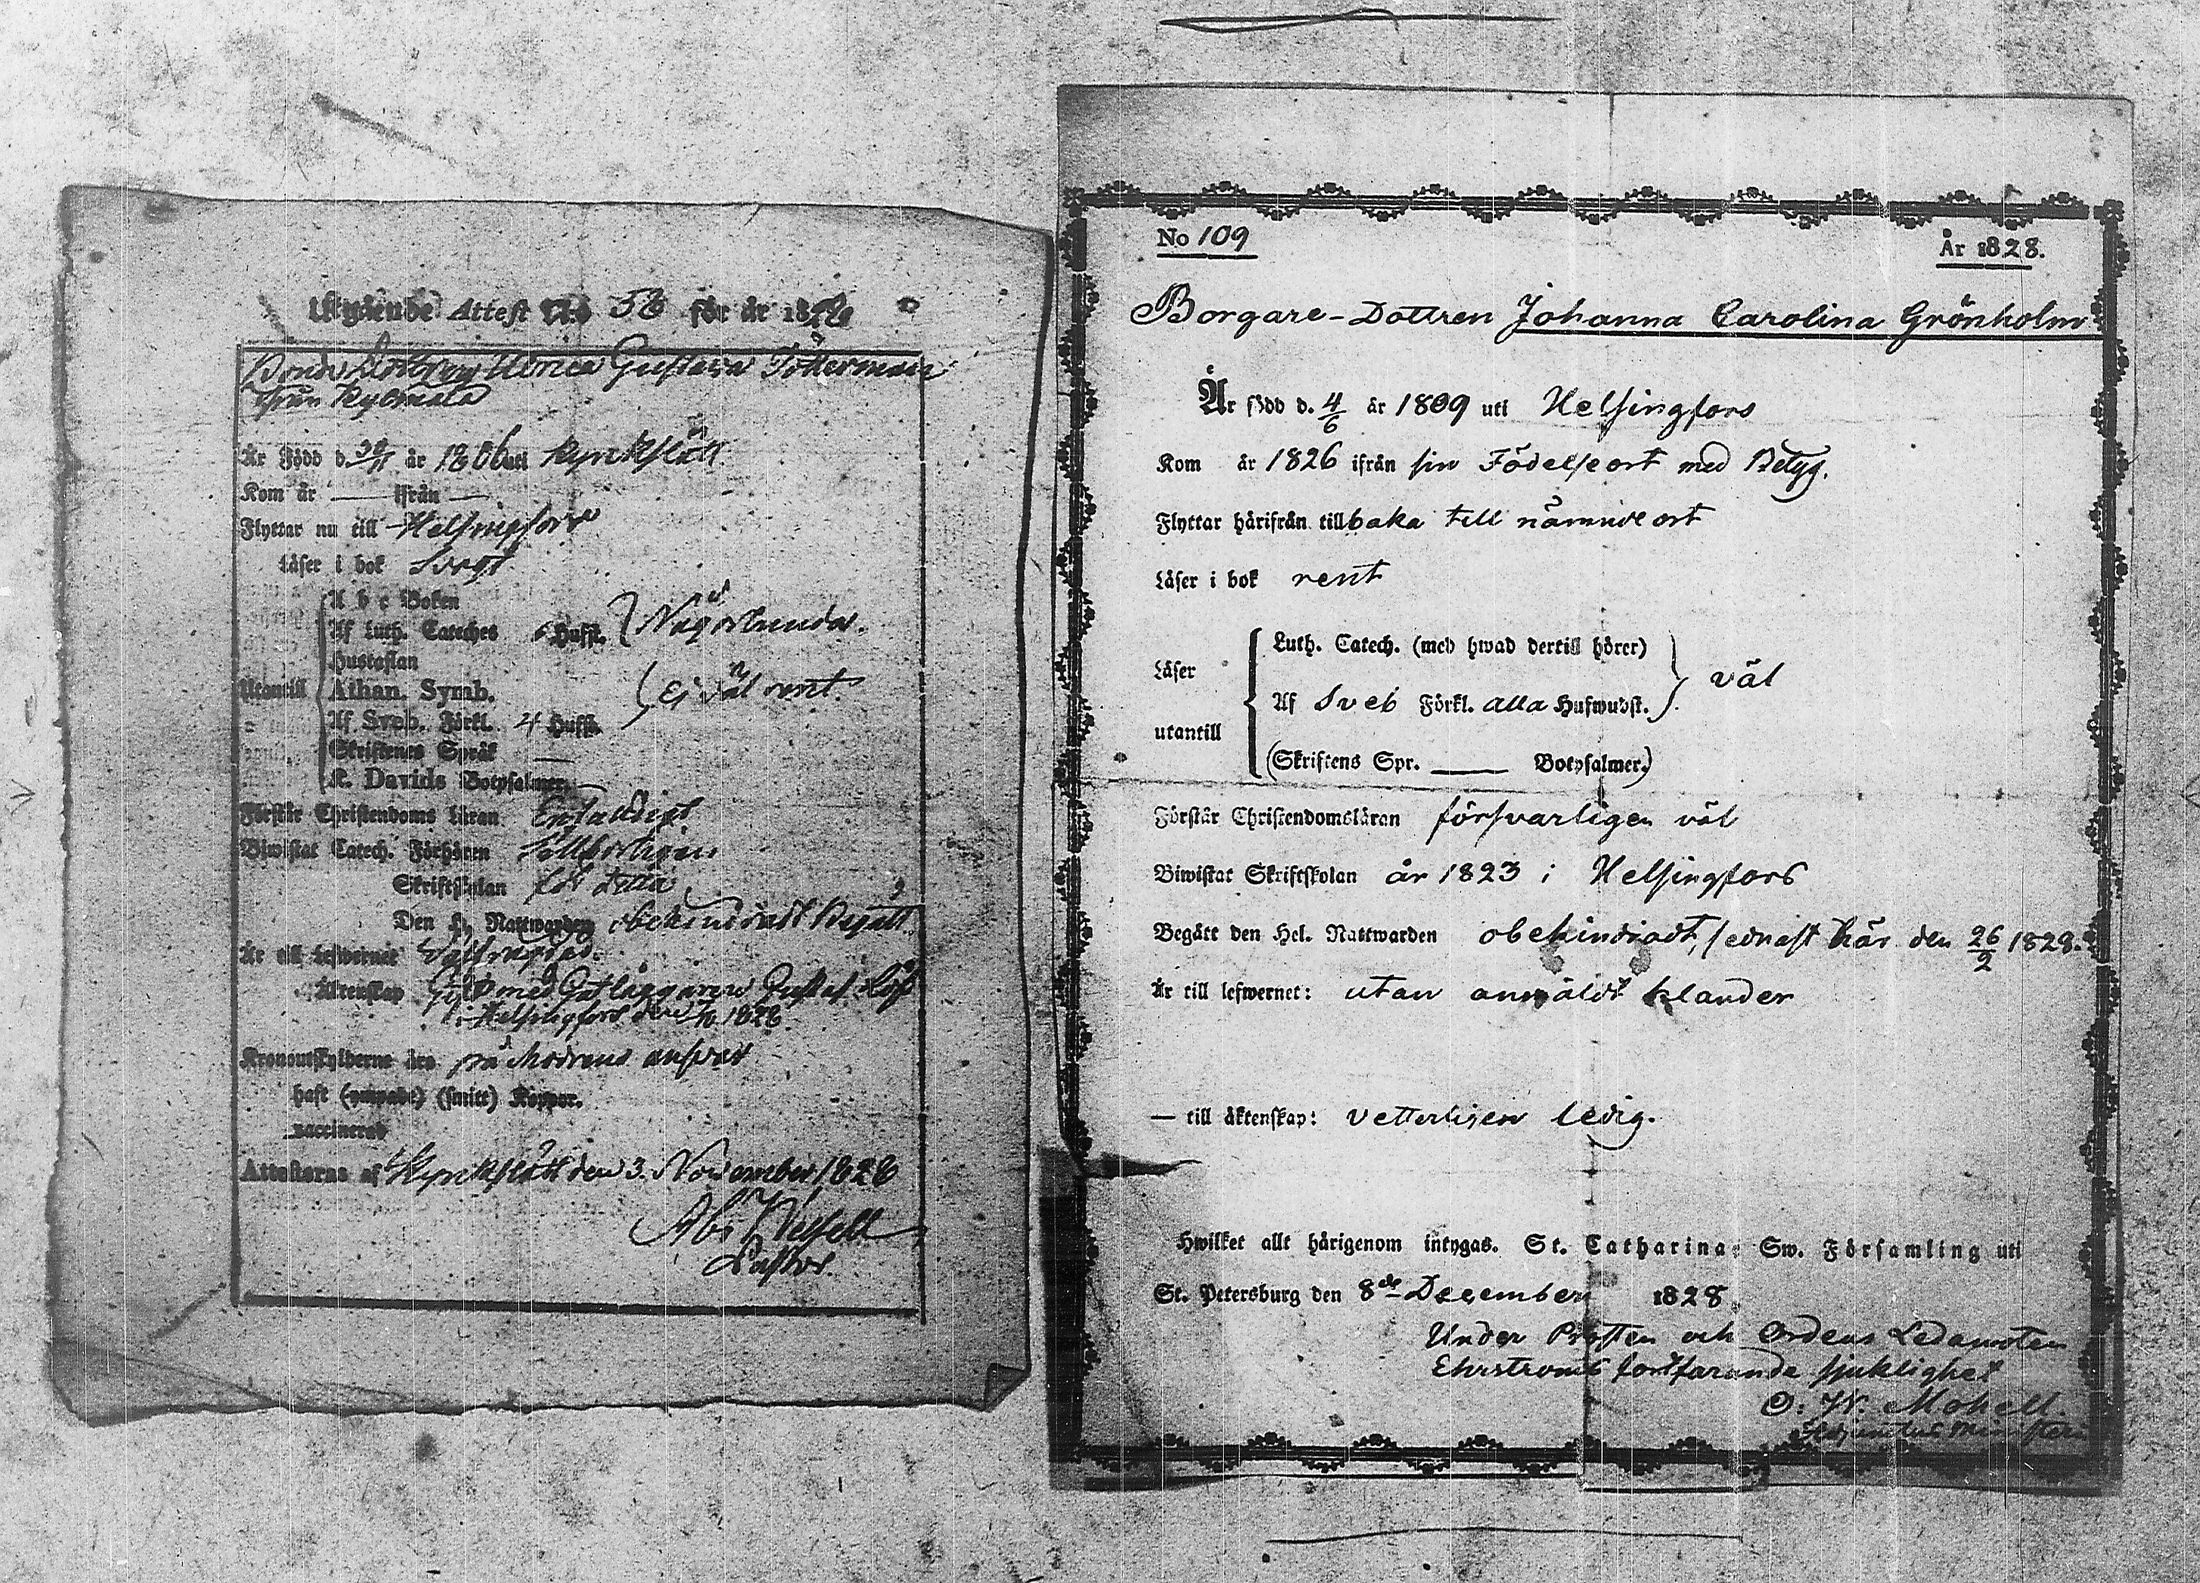 Utgående Attest No 56 för år 1828
Bondedottren Ulrica Gustava Fotterman
från Kylmälä
Är Född d. 30/11 år 1806 uti Kyrkslätt
Kom år — ifrån —
Flyttar nu till Helsingfors
Läser i bok Svagt
A b c Boken
Af Luth. Cateches 6 Hufst. Någorlunda.
Hustaflan
Utantill Athan. Symb. ej väl rent.
Af Sveb. Förkl. 4 Hufst.
Skriftenes Språk —
K. Davids Botpsalmer. —
Förstår Christendoms Läran Enfaldigt
Biwistat Catech. Förhören
Skriftskolan för detta
Den H. Nattwarden obehindradt Begått.
Är till lefwernet Välfrägdad.
Äktenskap Gift med Gatläggaren Gustaf Löf
i Helsingfors den 1828
Kronoutskylderne äro på Modrens ansvar
haft (ympade) (smitt) Koppor.
vaccinerad
Attesteras af Kyrkslätt den 3. November 1828
Pastor.
No 109
År 1828.
Borgare-Dottren Johanna Carolina Grönholm
Är född d. 4/6 år 1809 uti Helsingfors
Kom år 1826 ifrån sin Födelseort med Betyg.
Flyttar härifrån tillbaka till nämnde ort
Läser i bok rent
Luth. Catech. (med hwad dertill hörer)
Läser väl
Af Sveb Förkl. alla Hufwudst.
utantill
(Skriftens Spr. — Botpsalmer.)
Förstår Christendomsläran försvarligen väl
Biwistat Skriftskolan år 1823 i Helsingfors
Begått den Hel. Nattwarden obehindradt, sednast här den 26/2 1828.
Är till lefwernet: utan anmäldt klander
— till äktenskap: vetterligen ledig.
Hwilket allt härigenom intygas. St. Catharinas Sw. Församling uti
St. Petersburg den 8de December 1828
Under Prosten och Ordens Ledamoten
Ehrströms fortfarande sjuklighet
O. W. Mohell.
Adjunctus Ministerii